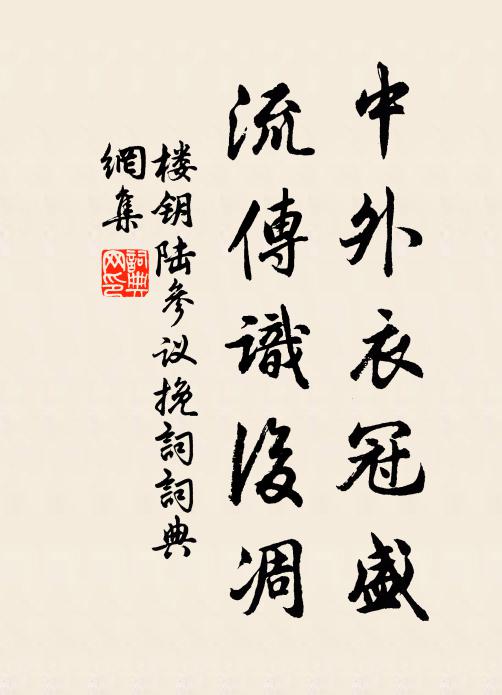 中外衣冠盛
流傳識後凋
楼钥陆參议挽詞詞典
網集
詞典网印